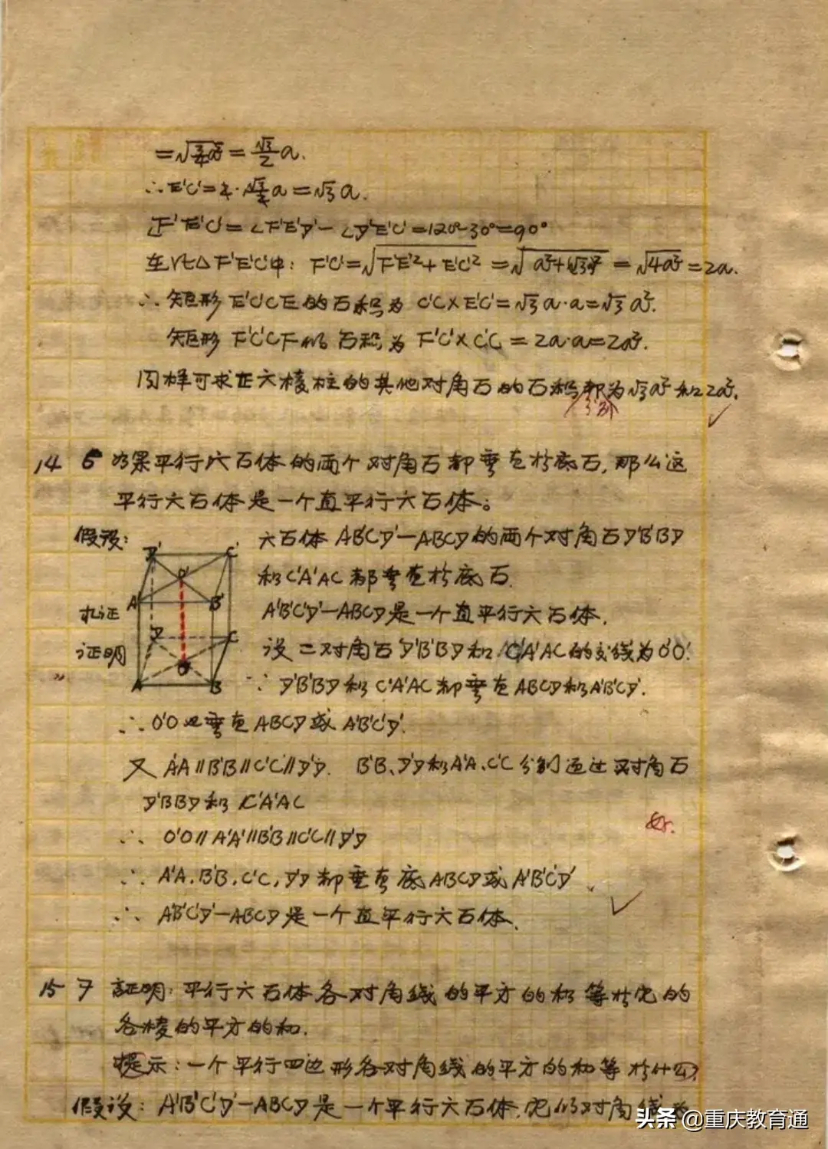 =√(3/4 a²) = √3/2 a.
∴ E'C' = 2·√3/2 a = √3 a.
∠F'E'C' = ∠F'E'D' − ∠D'E'C' = 120°−30° = 90°
在Rt△F'E'C'中: F'C' = √(F'E'² + E'C'²) = √(a²+(√3a)²) = √4a² = 2a.
∴ 矩形E'C'CE的面积为 C'C×E'C' = √3 a·a = √3 a².
矩形F'C'CF的面积为 F'C'×C'C = 2a·a = 2a².
同样可求正六棱柱的其他对角面的面积都为√3 a²和2a².
分别
14 6 如果平行六面体的两个对角面都垂直于底面,那么这
平行六面体是一个直平行六面体。
假设: 六面体A'B'C'D'−ABCD的两个对角面D'B'BD
和C'A'AC都垂直于底面.
求证 A'B'C'D'−ABCD是一个直平行六面体.
证明 设二对角面D'B'BD和C'A'AC的交线为O'O.
∵ D'B'BD和C'A'AC都垂直ABCD和A'B'C'D'.
D' C' O' A' B' D C O A B
∴ O'O也垂直ABCD或A'B'C'D'.
又 A'A∥B'B∥C'C∥D'D. B'B、D'D和A'A、C'C分别通过对角面
D'B'BD和C'A'AC
∴ O'O∥A'A∥B'B∥C'C∥D'D
∴ A'A、B'B、C'C、D'D都垂直底ABCD或A'B'C'D'
∴ A'B'C'D'−ABCD是一个直平行六面体.
15 7 証明:平行六面体各对角线的平方的和等于它的
各棱的平方的和.
提示:一个平行四边形各对角线的平方的和等于什么?
假设: A'B'C'D'−ABCD是一个平行六面体.它的对角线为
头条 @重庆教育通